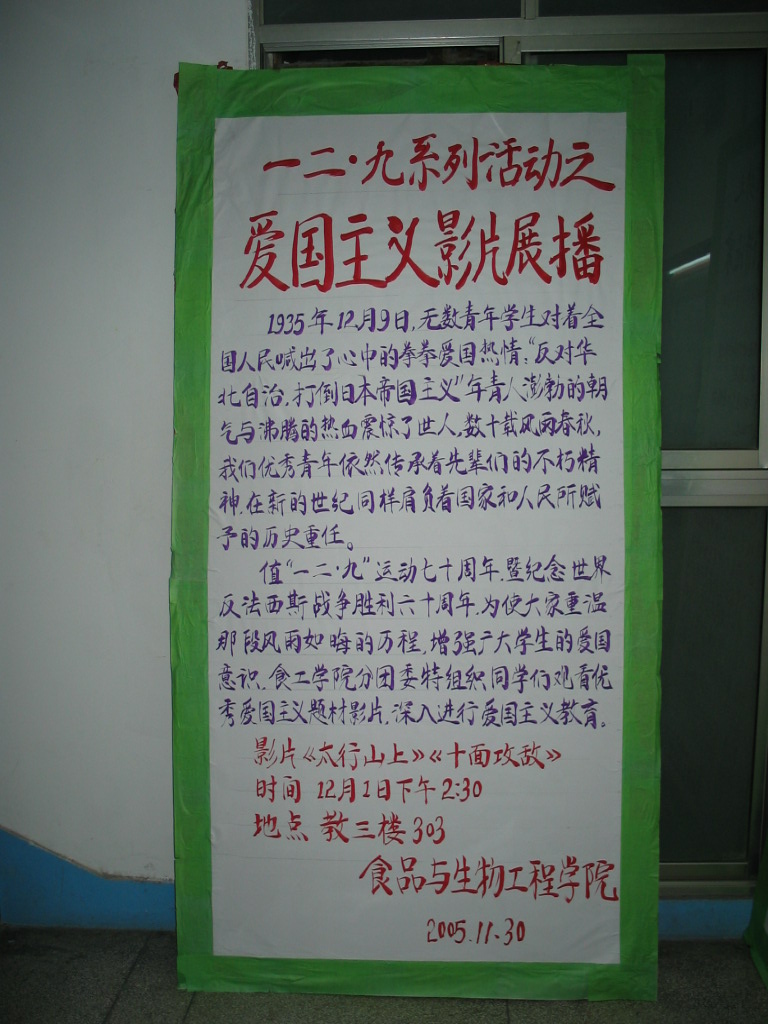 一二·九系列活动之
爱国主义影片展播
1935年12月9日,无数青年学生对着全
国人民喊出了心中的拳拳爱国热情:“反对华
北自治,打倒日本帝国主义”年青人澎勃的朝
气与沸腾的热血震惊了世人,数十载风雨春秋,
我们优秀青年依然传承着先辈们的不朽精
神,在新的世纪同样肩负着国家和人民所赋
予的历史重任。
值“一二·九”运动七十周年,暨纪念世界
反法西斯战争胜利六十周年,为使大家重温
那段风雨如晦的历程,增强广大学生的爱国
意识,食工学院分团委特组织同学们观看优
秀爱国主义题材影片,深入进行爱国主义教育。
影片《太行山上》《十面攻敌》
时间 12月1日下午2:30
地点 教三楼303
食品与生物工程学院
2005.11.30